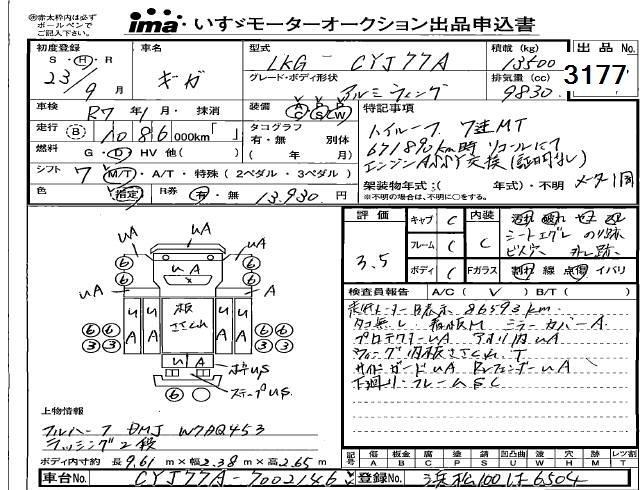 ㊟赤太枠内は必ず
ボールペンで
ご記入下さい。
ima いすゞモーターオークション出品申込書
初度登録 車名 型式 LKG - CYJ77A 積載 (kg) 13500 出品 No.
S・H・R 23/9月 ギガ グレード・ボディ形状 アルミウィング 排気量 (cc) 9830 3177
車検 R7年1月・抹消 装備 AC PS PW 特記事項
走行 B 1086 000km「 」 タコグラフ 有・無 別体 ハイルーフ 7速MT
燃料 G・D・HV 他( ) ( 年 月) 671890km時 リコールにて
シフト 7 M/T・A/T・特殊 (2ペダル・3ペダル) エンジンASSY交換(証明なし)
色 指定 R券 有・無 13,930円 架装物年式:( 年式)・不明 メーター1回
※不明の場合は、不明に○をする。
評価 3.5 キャブ C 内装 C
フレーム C シートエグレ のり跡
ビス穴 外し跡
ボディ C Fガラス 割れ 線 点傷 イバリ
検査員報告 A/C ( ✓ ) B/T ( )
走行メーターB表示 86593km
タコ無し 看板M ミラーカバーA
プロテクターuA アオリ内uA
ウィング内板ささくれ、T
サイドガードuA RrフェンダーuA
下廻り・フレームSC
uA uA
uA
uA uA
uA 板ささくれ uA
uA uA
ステップuS
6 6 6 6 6 6 3 3 3 3 6
上物情報
フルハーフ DMJ W7AQ453
ラッシング2段
ボディ内寸約 長 9.61 m×幅 2.38 m×高 2.65 m
記号 傷 A 板金 B 腐 C 塗 P 錆 S 凹凸曲 U 波 W 穴 H 跡 M レツ割 T
車台No. CYJ77A-7002146 登録No. 浜松100は6504